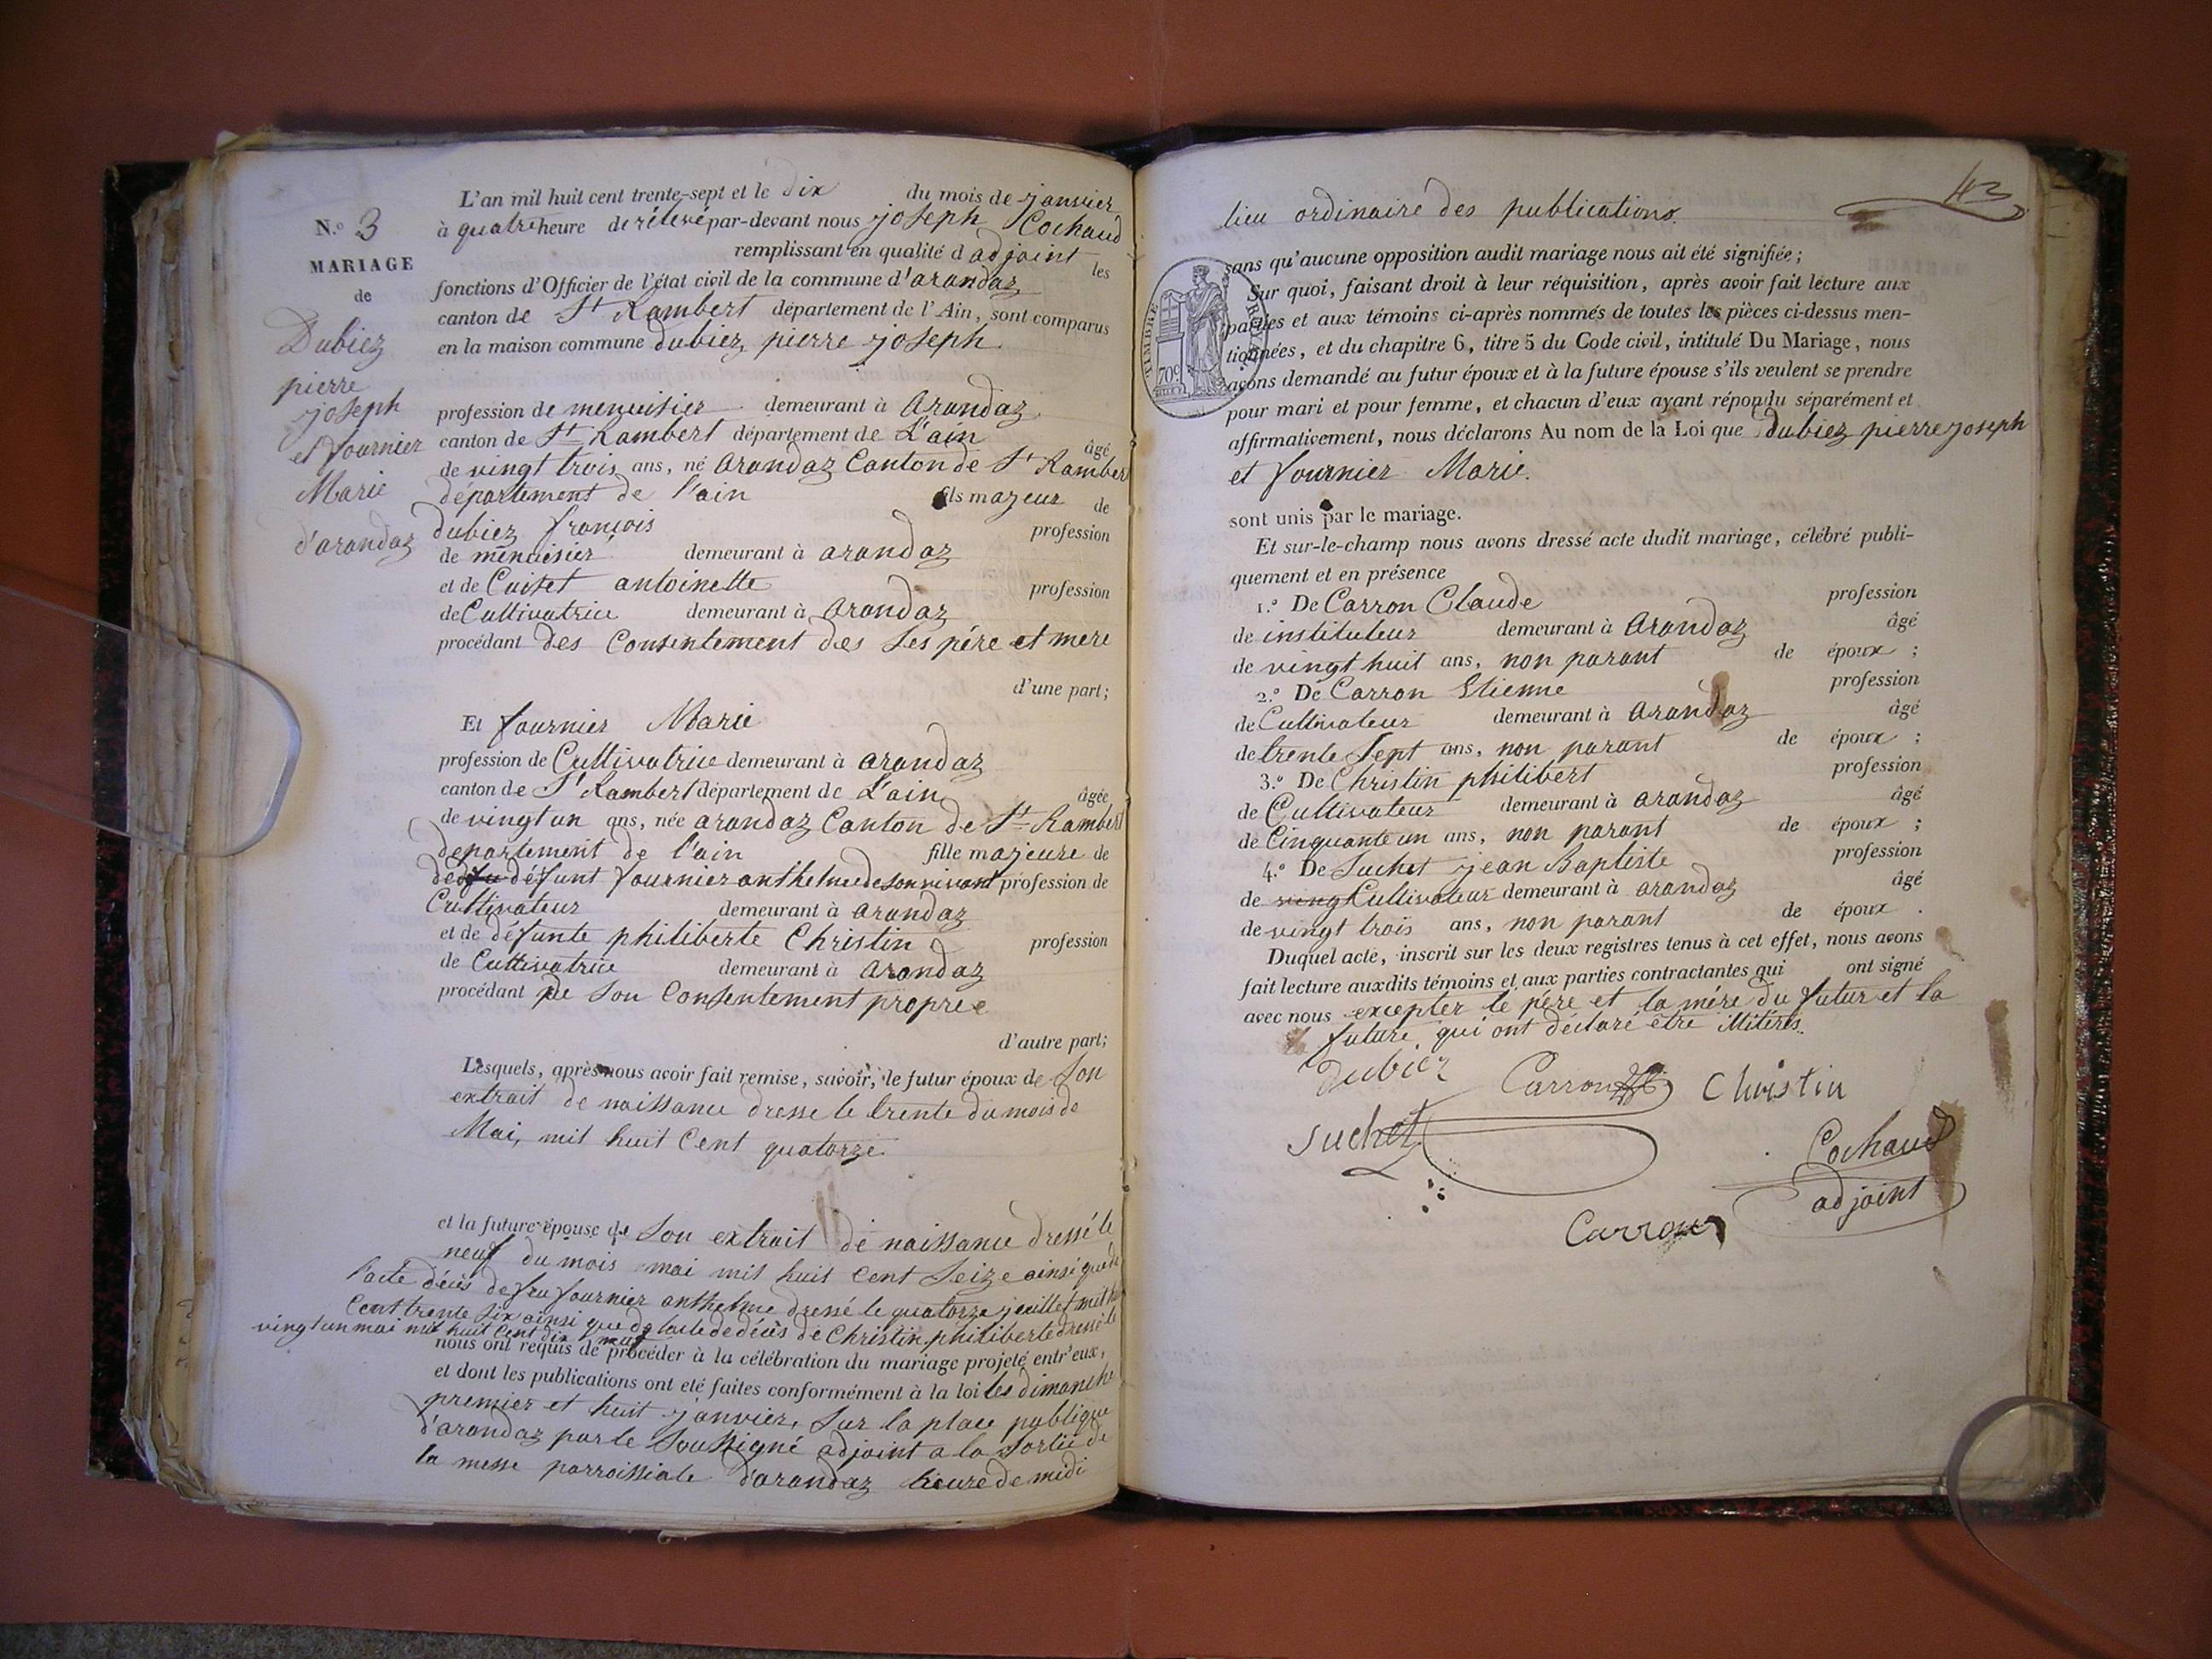 N.° 3
MARIAGE
de
Dubiez
pierre
joseph
et fournier
Marie
d'arandaz
L'an mil huit cent trente-sept et le dix du mois de janvier
à quatre heure de rélevé par-devant nous joseph Cochaud
remplissant en qualité d adjoint les
fonctions d'Officier de l'état civil de la commune d'arandaz
canton de St Rambert département de l'Ain, sont comparus
en la maison commune dubiez pierre joseph
profession de menuisier demeurant à Arandaz
canton de St Rambert département de L'ain âgé
de vingt trois ans, né Arandaz Canton de St Rambert
département de l'ain fils majeur de
dubiez françois profession
de menuisier demeurant à arandaz
et de Cuiset antoinette profession
de Cultivatrice demeurant à Arandaz
procédant des Consentement des ses pére et mere
d'une part;
Et fournier Marie
profession de Cultivatrice demeurant à arandaz
canton de St Rambert département de L'ain âgée
de vingt un ans, née arandaz Canton de St Rambert
département de l'ain fille majeure de
défunt fournier anthelme de son vivant profession de
Cultivateur demeurant à arandaz
et de défunte philiberte Christin profession
de Cultivatrice demeurant à Arandaz
procédant de son Consentement propre
d'autre part;
Lesquels, après nous avoir fait remise, savoir, le futur époux de Son
extrait de naissance dresse le trente du mois de
Mai, mil huit Cent quatorze
et la future épouse de Son extrait de naissance dressé le
neuf du mois mai mil huit Cent Seize ainsi que de
l'acte décès de feu fournier anthelme dressé le quatorze jeuillet mil huit
Cent trente six ainsi que de l'acte de décès de Christin philiberte dressé le
vingt un mai mil huit Cent dix neuf
nous ont requis de procéder à la célébration du mariage projeté entr'eux,
et dont les publications ont été faites conformément à la loi les dimanche
premier et huit janvier, Sur la place publique
d'arandaz par le Soussigné adjoint a la Sortie de
la messe parroissiale d'arandaz heure de midi
43
lieu ordinaire des publications.
TIMBRE ROYAL
70c
sans qu'aucune opposition audit mariage nous ait été signifiée;
Sur quoi, faisant droit à leur réquisition, après avoir fait lecture aux
parties et aux témoins ci-après nommés de toutes les pièces ci-dessus men-
tionnées, et du chapitre 6, titre 5 du Code civil, intitulé Du Mariage, nous
avons demandé au futur époux et à la future épouse s'ils veulent se prendre
pour mari et pour femme, et chacun d'eux ayant répondu séparément et
affirmativement, nous déclarons Au nom de la Loi que Dubiez pierre joseph
et fournier Marie.
sont unis par le mariage.
Et sur-le-champ nous avons dressé acte dudit mariage, célébré publi-
quement et en présence
1.° De Carron Claude profession
de instituteur demeurant à Arandaz âgé
de vingt huit ans, non parant de époux ;
2.° De Carron Etienne profession
de Cultivateur demeurant à Arandaz âgé
de trente Sept ans, non parant de époux ;
3.° De Christin philibert profession
de Cultivateur demeurant à arandaz âgé
de Cinquante un ans, non parant de époux ;
4.° De Suchet jean Baptiste profession
de ving Cultivateur demeurant à arandaz âgé
de vingt trois ans, non parant de époux .
Duquel acte, inscrit sur les deux registres tenus à cet effet, nous avons
fait lecture auxdits témoins et aux parties contractantes qui ont signé
avec nous excepter le pére et la mére du futur et la
future qui ont déclaré être illitéres.
Dubiez Carron Christin
Suchet
Cochaud
adjoint
Carron